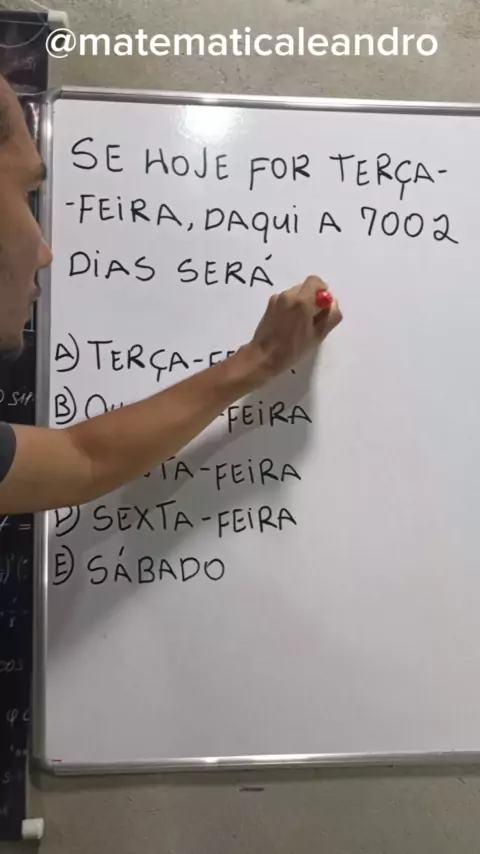 @matematicaleandro
SE HOJE FOR TERÇA-
-FEIRA, DAQUI A 7002
DIAS SERÁ
A) TERÇA-FE
B) QU -FEIRA
TA-FEIRA
D) SEXTA-FEIRA
E) SÁBADO